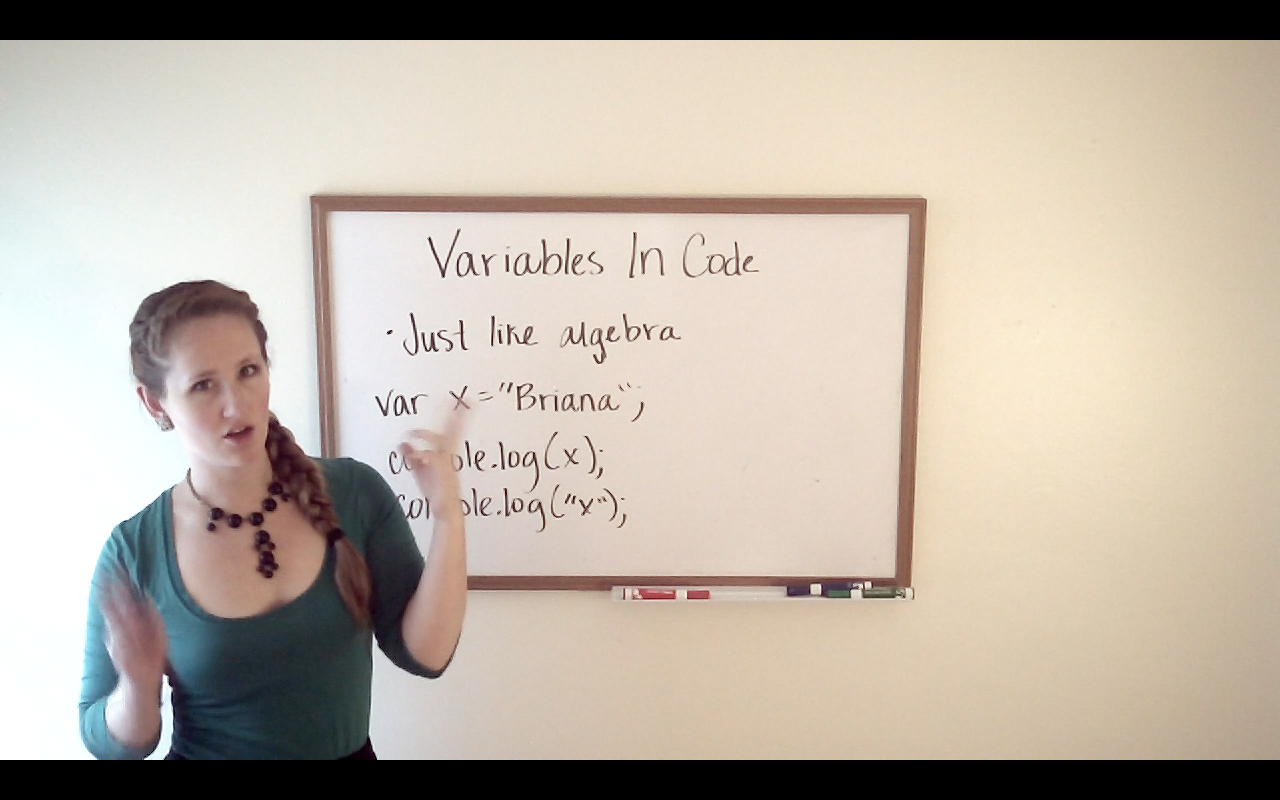 Variables In Code
· Just like algebra
var x = "Briana";
console.log(x);
console.log("x");